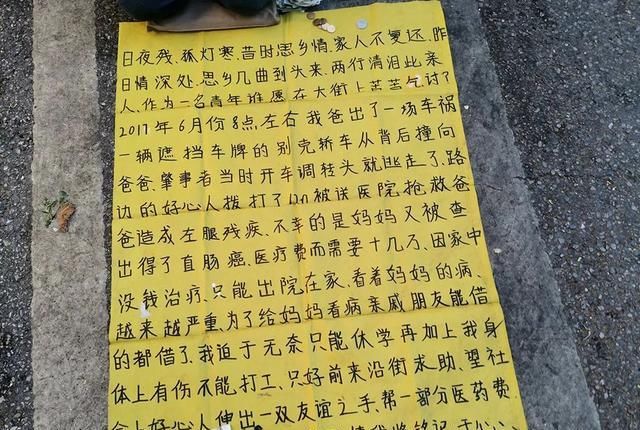 日夜残、孤灯寒、昔时思乡情、家人不复还、昨
日情深处、思乡几曲到头来、两行清泪此亲
人、作为一名青年谁愿在大街上苦苦乞讨了
2017年6月份8点左右我爸出了一场车祸
一辆遮挡车牌的别克轿车从背后撞向
爸爸、肇事者当时开车调转头就逃走了、路
边的好心人拨打了120被送医院、抢救爸
爸造成左腿残疾、不幸的是妈妈又被查
出得了直肠癌、医疗费而需要十几万、因家中
没钱治疗、只能出院在家、看着妈妈的病、
越来越严重、为了给妈妈看病亲戚朋友能借
的都借了、我迫于无奈只能休学再加上我身
体上有伤不能打工、只好前来沿街求助、望社
会上好心人伸出一双友谊之手、帮一部分医药费